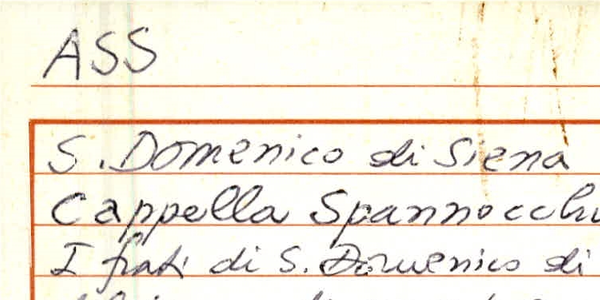 ASS
S. Domenico di Siena
Cappella Spannocchi
I frati di S. Domenico di